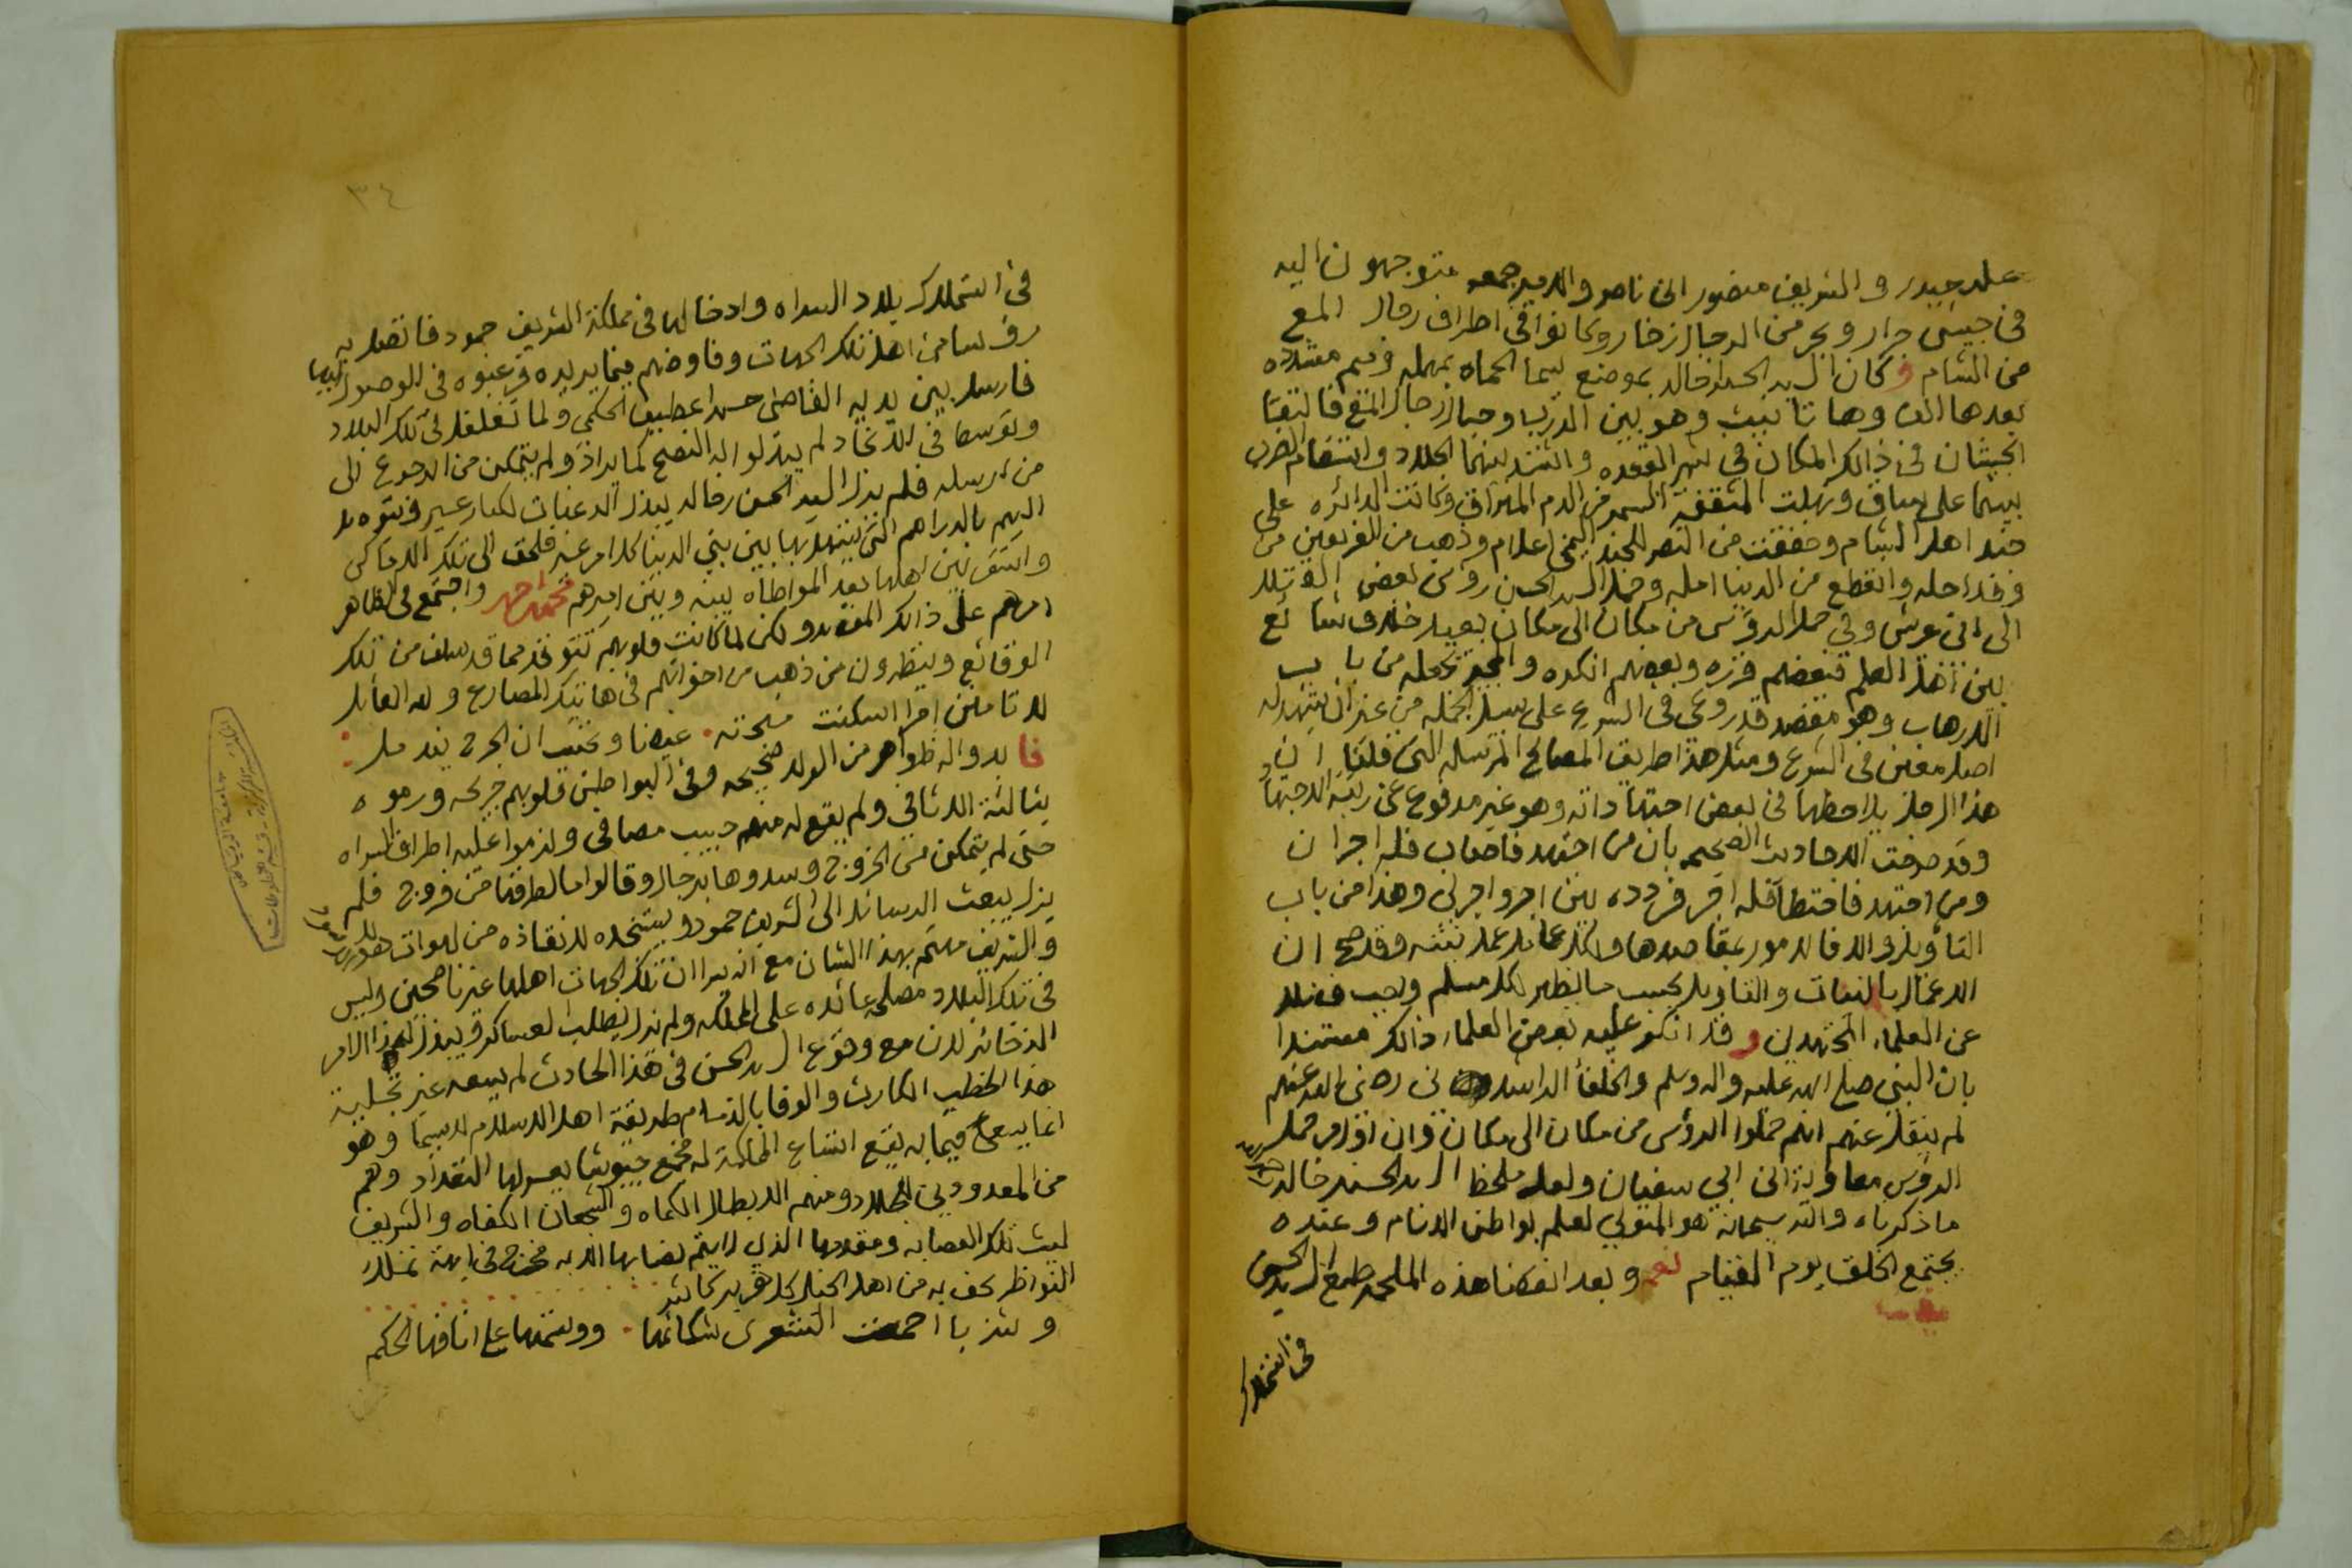 علي حيدر والشريف منصور ابن ناصر والامير جمعه متوجهون اليه
في جيش جرار وبحر من الرجال زخار وكانوا في اطراف رمال المع
من الشام وكان السيد الحسن ابن خالد بموضع يسما الحماه بمهمله وميم مشدده
بعدها الف وها تانيث وهو بين الدرب وجبال رجال المع فالتقا
الجيشان في ذالك المكان في شهر القعده واشتد بينهما الجلاد وانتقام الحرب
بينهما على ساق ونهلت المثقفة السمر من الدم المهراق وكانت الدائره على
جند اهل الشام وخفقت من النصر للجند اليمني اعلام وذهب من الفريقين من
وفد اجله وانقطع من الدنيا امله وحمل السيد الحسن روس بعض القتلا
الى ابي عريش وفي حمل الروس من مكان الى مكان بعيد خلاف شائع
بين اهل العلم فبعضهم قرره وبعضهم انكره والمجيز يجعله من باب
الارهاب وهو مقصد قد روعي في الشرع على سبيل الجمله من غير ان يشهد له
اصل معين في الشرع ومثل هذا طريق المصالح المرسله التي قلنا ان
هذا الرجل يلاحظها في بعض اجتهاداته وهو غير مدفوع عن رتبة الاجتهاد
وقد صرحت الاحاديث الصحيحه بان من اجتهد فاصاب فله اجران
ومن اجتهد فاخطا فله اجر فردده بين اجر واجرين وهذا من باب
التاويل والا فالامور بمقاصدها ولكل عامل عمل نيته وقد صح ان
الاعمال بالنيات والتاويل بحسب ما يظهر لكل مسلم ويجب فضلا
عن العلماء المجتهدين وقد انكر عليه بعض العلماء ذالك مستندا
بان النبي صلى الله عليه واله وسلم والخلفا الراشدين رضي الله عنهم
لم ينقل عنهم انهم حملوا الروس من مكان الى مكان وان اول من حمل
الروس معاوية ابن ابي سفيان ولعل ملحظ السيد الحسن بن خالد
ما ذكرناه والله سبحانه هو المتولي لعلم بواطن الانام وعنده
يجتمع الخلق يوم القيام نعم وبعد انفصال هذه الملحمه طمع السيد الحسن
في التملك
٣٤
في التملك بلاد السراه وادخالها في مملكة الشريف حمود فاتصل به
روسا من اهل تلك الجهات وفاوضهم فيما يريده فرغبوه في الوصول اليها
فارسل بين يديه القاضي حسن ابن عطيف الحكمي ولما تغلغل في تلك البلاد
وتوسط في الانجاد لم يبذلوا له النصح كما يراد ولم يتمكن من الرجوع الى
من ارسله فلم يزل السيد الحسن بن خالد يبذل الرغبات لكبار عسير ويتوسل
اليهم بالدراهم التي يستهل بها بين بني الدنيا كل امر عسير فلحق الى تلك الاماكن
واستقر بين اهلها بعد المواطاه بينه وبين اميرهم محمد ابن احمد واجتمع في الظاهر
امرهم على ذالك المقصد ولكن لما كانت قلوبهم تتوقد مما قد سلف من تلك
الوقائع وينظرون من ذهب من اخوانهم في هاتيك المصارع ولله القائل
لا تامنن امرا اسكنت مهجته غيضا وتحسب ان الجرح يندمل
فابدوا له ظواهر من الولا صحيحه وفي البواطن قلوبهم جريحه ورموه
بثالثة الاثافي ولم يقع له منهم حبيب مصافي ولزموا عليه اطراف السراه
حتى لم يتمكن من الخروج وسدوها بالرجال وقالوا ما لطرقنا من فروج فلم
يزل يبعث الرسائل الى الشريف حمود ويستنجده لانقاذه من لهوات هؤلاء
والشريف مهتم بهذا الشان مع انه يرا ان تلك الجهات اهلها غير ناصحين وليس
في تلك البلاد مصلحة عائده على المملكه ولم يزل يطلب العساكر ويبذل لهذا الامر
الذخائر لان مع وقوع السيد الحسن في هذا الحادث لم يسعه غير تجلية
هذا الخطب الكارث والوفا بالذمام طريقة اهل الاسلام لا سيما وهو
انما يسعى فيما به يقع اتساع المملكة له فجمع جيوشا يعسر لها التعداد وهم
من المعدودين للجلاد ومنهم الابطال الكماه والشجعان الكفاه والشريف
ليث تلك العصابه ومقدمها الذي رايتم نصابها الا به فخرج في ابهة تملا
النواظر يحف به من اهل الخيل كل قرم كاثر
وشزبا احمت الشعرى شكائمها ووسمتها على انافها الحكم